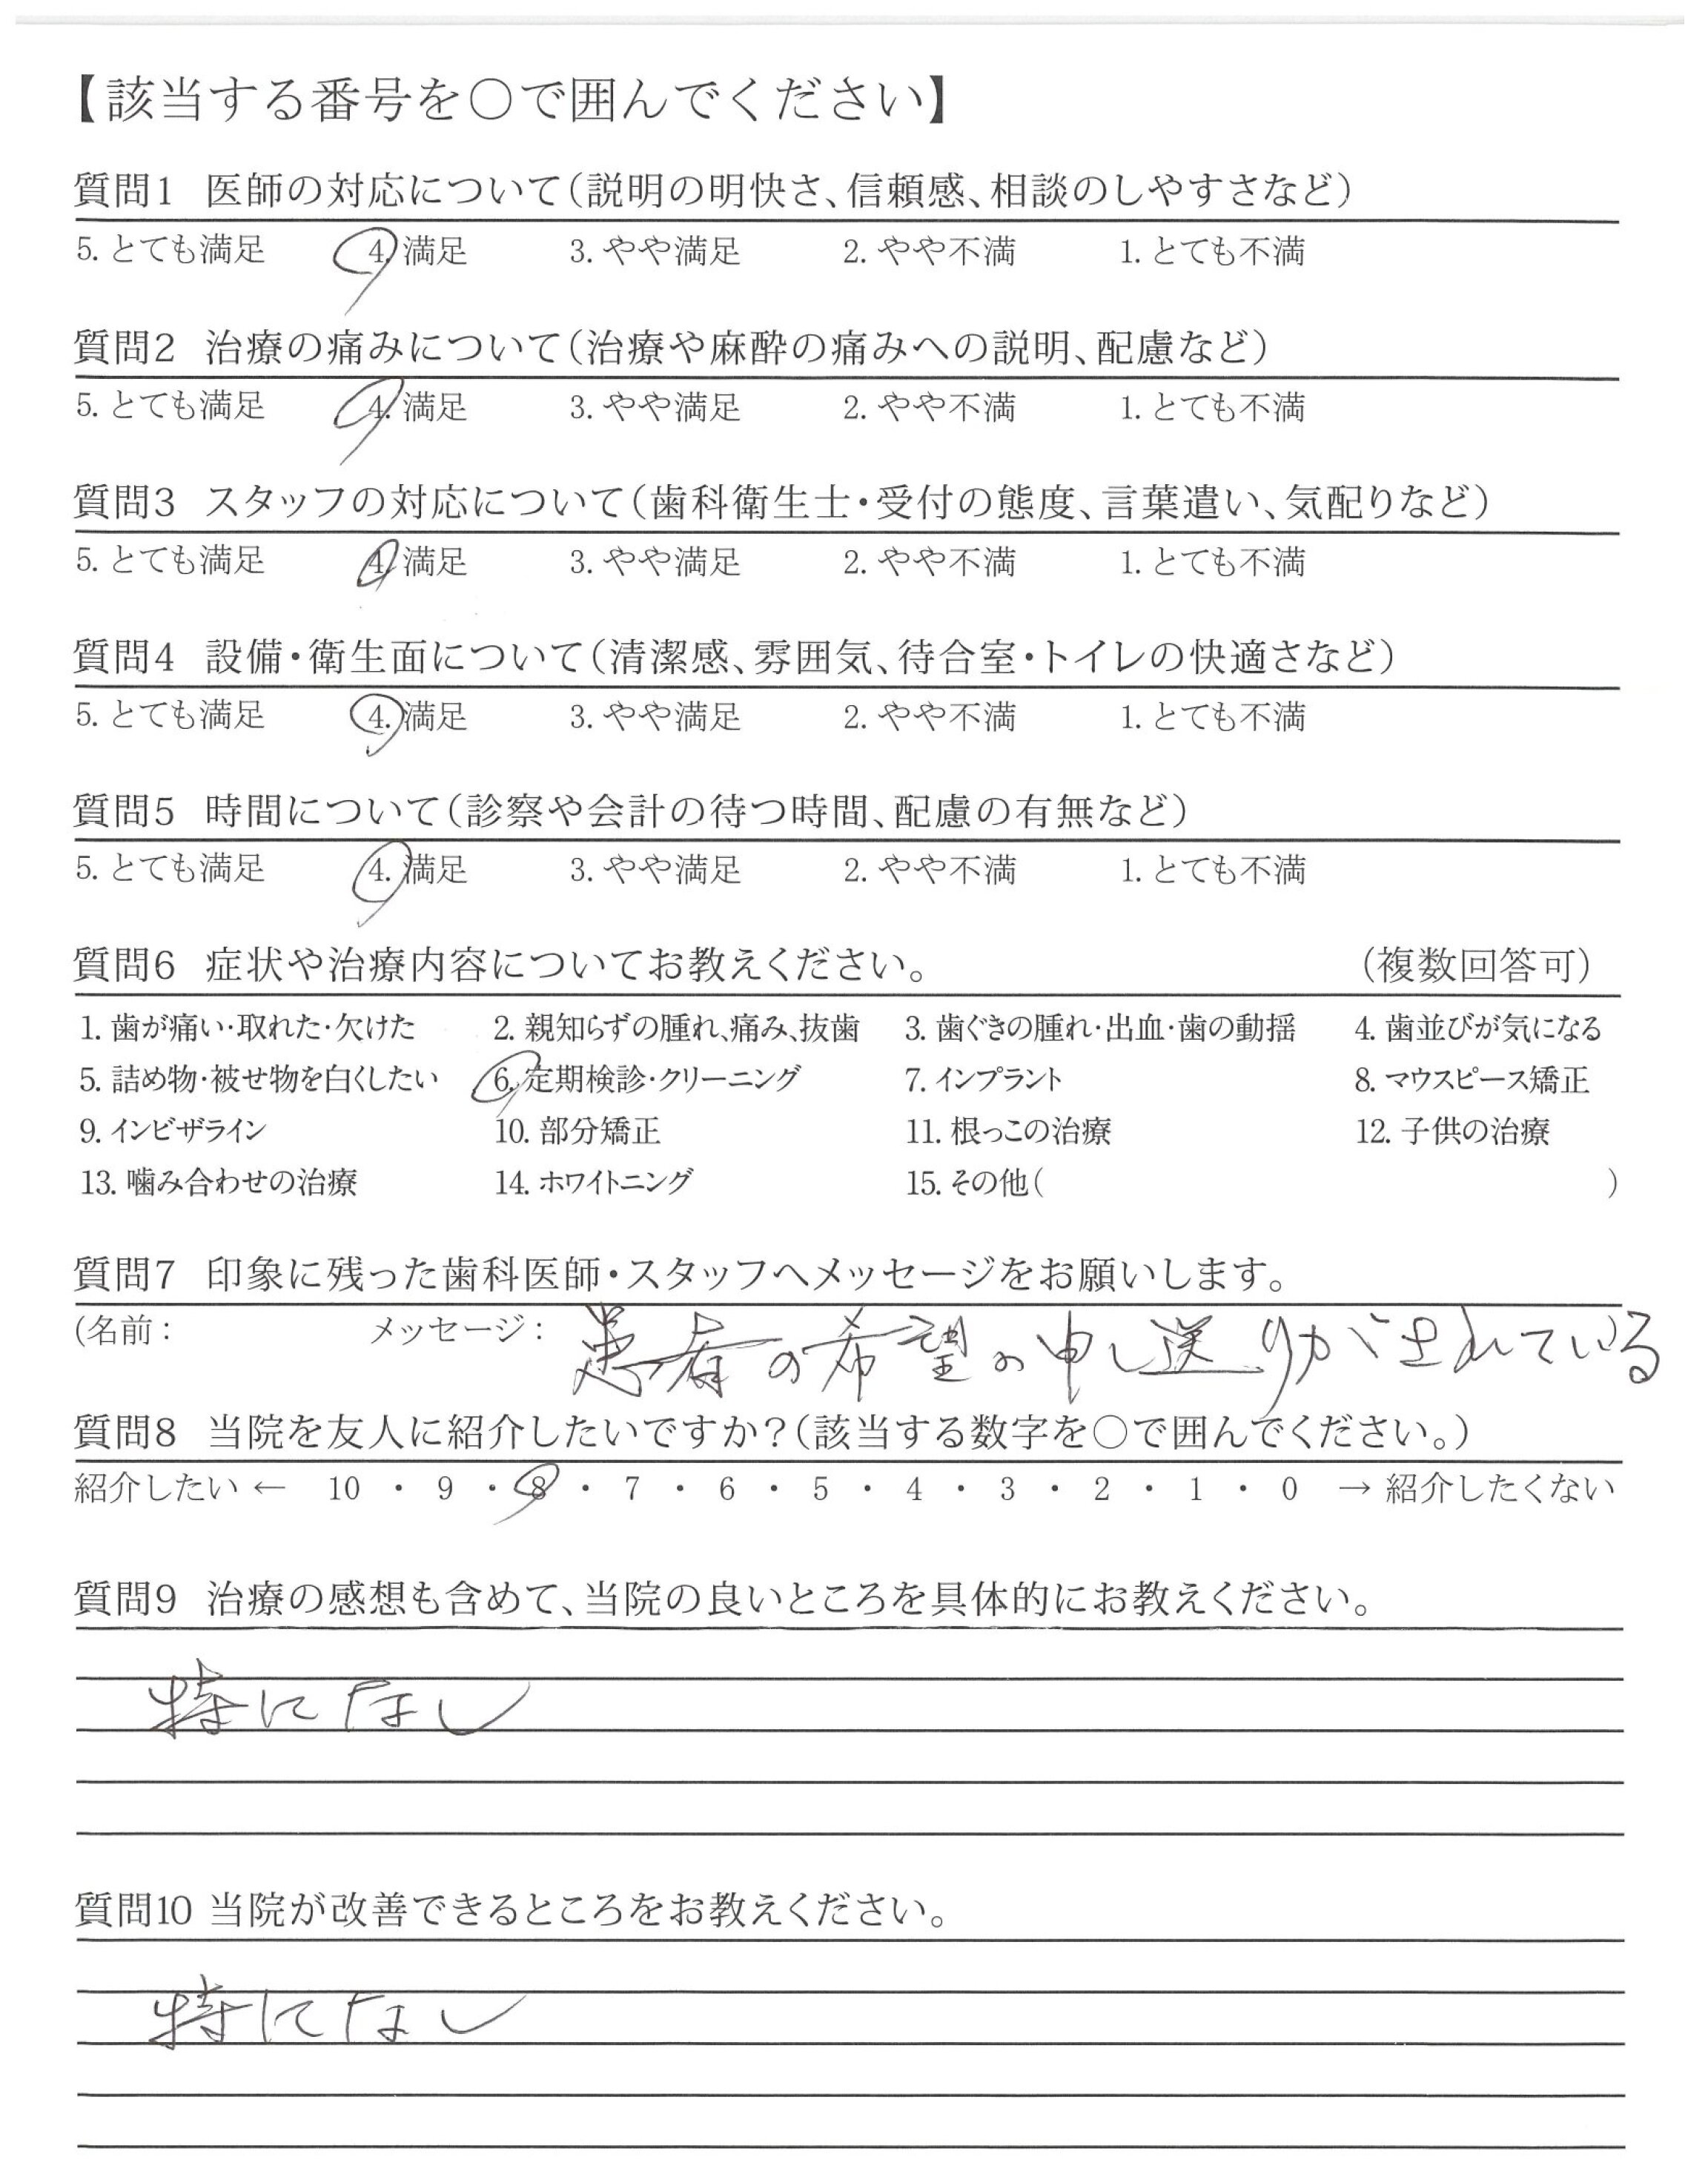 【該当する番号を○で囲んでください】
質問1 医師の対応について(説明の明快さ、信頼感、相談のしやすさなど)
5. とても満足 4. 満足 3. やや満足 2. やや不満 1. とても不満
質問2 治療の痛みについて(治療や麻酔の痛みへの説明、配慮など)
5. とても満足 4. 満足 3. やや満足 2. やや不満 1. とても不満
質問3 スタッフの対応について(歯科衛生士・受付の態度、言葉遣い、気配りなど)
5. とても満足 4. 満足 3. やや満足 2. やや不満 1. とても不満
質問4 設備・衛生面について(清潔感、雰囲気、待合室・トイレの快適さなど)
5. とても満足 4. 満足 3. やや満足 2. やや不満 1. とても不満
質問5 時間について(診察や会計の待つ時間、配慮の有無など)
5. とても満足 4. 満足 3. やや満足 2. やや不満 1. とても不満
質問6 症状や治療内容についてお教えください。 (複数回答可)
1. 歯が痛い・取れた・欠けた 2. 親知らずの腫れ、痛み、抜歯 3. 歯ぐきの腫れ・出血・歯の動揺 4. 歯並びが気になる
5. 詰め物・被せ物を白くしたい 6. 定期検診・クリーニング 7. インプラント 8. マウスピース矯正
9. インビザライン 10. 部分矯正 11. 根っこの治療 12. 子供の治療
13. 噛み合わせの治療 14. ホワイトニング 15. その他( )
質問7 印象に残った歯科医師・スタッフへメッセージをお願いします。
(名前: メッセージ: 患者の希望の申し送りがされている
質問8 当院を友人に紹介したいですか?(該当する数字を○で囲んでください。)
紹介したい ← 10 ・ 9 ・ 8 ・ 7 ・ 6 ・ 5 ・ 4 ・ 3 ・ 2 ・ 1 ・ 0 → 紹介したくない
質問9 治療の感想も含めて、当院の良いところを具体的にお教えください。
特になし
質問10 当院が改善できるところをお教えください。
特になし